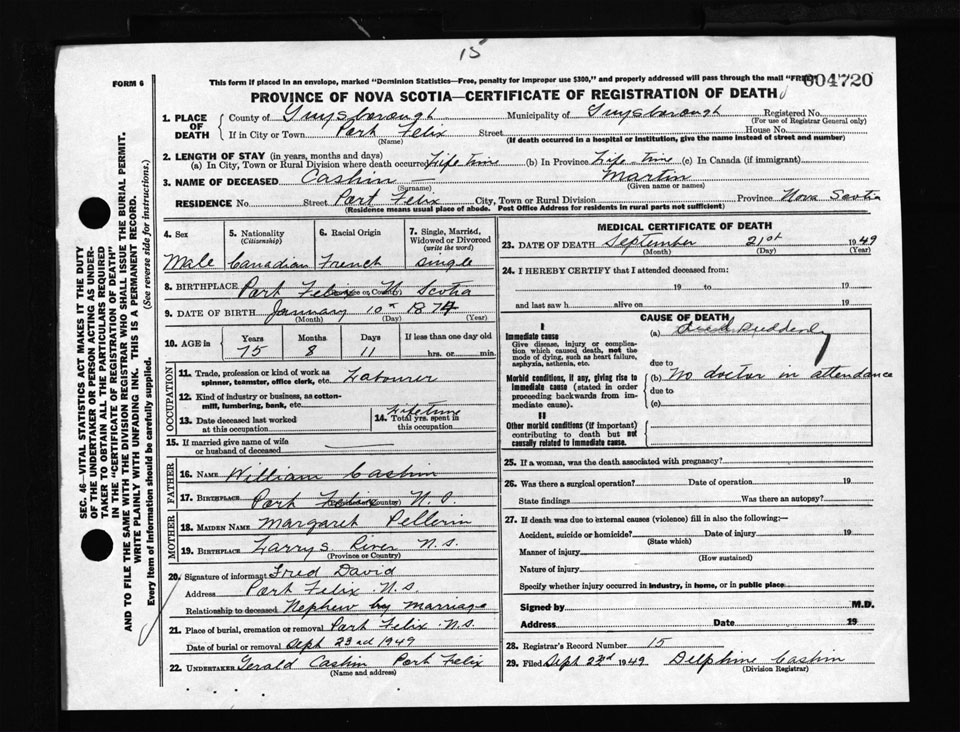 15
FORM 6
This form if placed in an envelope, marked "Dominion Statistics—Free, penalty for improper use $300," and properly addressed will pass through the mail "FREE"
004720
PROVINCE OF NOVA SCOTIA—CERTIFICATE OF REGISTRATION OF DEATH
1. PLACE OF DEATH
County of Guysborough Municipality of Guysborough Registered No.
(For use of Registrar General only)
If in City or Town Port Felix Street House No.
(Name) (If death occurred in a hospital or institution, give the name instead of street and number)
2. LENGTH OF STAY (in years, months and days)
(a) In City, Town or Rural Division where death occurred Life time (b) In Province Life-time (c) In Canada (if immigrant)
3. NAME OF DECEASED Cashin — Martin
(Surname) (Given name or names)
RESIDENCE No. Street, Port Felix City, Town or Rural Division Province Nova Scotia
(Residence means usual place of abode. Post Office Address for residents in rural parts not sufficient)
4. Sex 5. Nationality (Citizenship) 6. Racial Origin 7. Single, Married, Widowed or Divorced (write the word)
Male Canadian French single
8. BIRTHPLACE Port Felix N. Scotia
(Province or Country)
9. DATE OF BIRTH January 10 1874
(Month) (Day) (Year)
10. AGE in Years Months Days If less than one day old
75 8 11 hrs. or min.
OCCUPATION
11. Trade, profession or kind of work as spinner, teamster, office clerk, etc. Labourer
12. Kind of industry or business, as cotton-mill, lumbering, bank, etc.
13. Date deceased last worked at this occupation
14. Total yrs. spent in this occupation Lifetime
15. If married give name of wife or husband of deceased
FATHER
16. NAME William Cashin
17. BIRTHPLACE Port Felix N. S.
(Province or Country)
MOTHER
18. MAIDEN NAME Margaret Pellerin
19. BIRTHPLACE Larrys River N.S.
(Province or Country)
20. Signature of informant Fred David
Address Port Felix N.S.
Relationship to deceased Nephew by marriage
21. Place of burial, cremation or removal Port Felix N.S.
Date of burial or removal Sept 23rd 1949
22. UNDERTAKER Gerald Cashin Port Felix
(Name and address)
MEDICAL CERTIFICATE OF DEATH
23. DATE OF DEATH September 21st 1949
(Month) (Day) (Year)
24. I HEREBY CERTIFY that I attended deceased from:
19 to 19
and last saw h alive on 19
CAUSE OF DEATH
I
Immediate cause (a) Suddenly
Give disease, injury or complication which caused death, not the mode of dying, such as heart failure, asphyxia, asthenia, etc.
due to
Morbid conditions, if any, giving rise to immediate cause (stated in order proceeding backwards from immediate cause).
(b) No doctor in attendance
due to
(c)
II
Other morbid conditions (if important) contributing to death but not causally related to immediate cause.
25. If a woman, was the death associated with pregnancy?
26. Was there a surgical operation? Date of operation 19
State findings Was there an autopsy?
27. If death was due to external causes (violence) fill in also the following:—
Accident, suicide or homicide? Date of injury 19
(State which)
Manner of injury
(How sustained)
Nature of injury
Specify whether injury occurred in industry, in home, or in public place
Signed by M.D.
Address Date 19
28. Registrar's Record Number 15
29. Filed Sept 23rd 1949 Delphine Cashin
(Division Registrar)
SEC. 46—VITAL STATISTICS ACT MAKES IT THE DUTY
OF THE UNDERTAKER OR PERSON ACTING AS UNDER-
TAKER TO OBTAIN ALL THE PARTICULARS REQUIRED
IN THE "CERTIFICATE OF REGISTRATION OF DEATH"
AND TO FILE THE SAME WITH THE DIVISION REGISTRAR WHO SHALL ISSUE THE BURIAL PERMIT.
WRITE PLAINLY WITH UNFADING INK. THIS IS A PERMANENT RECORD.
Every item of information should be carefully supplied. (See reverse side for instructions.)